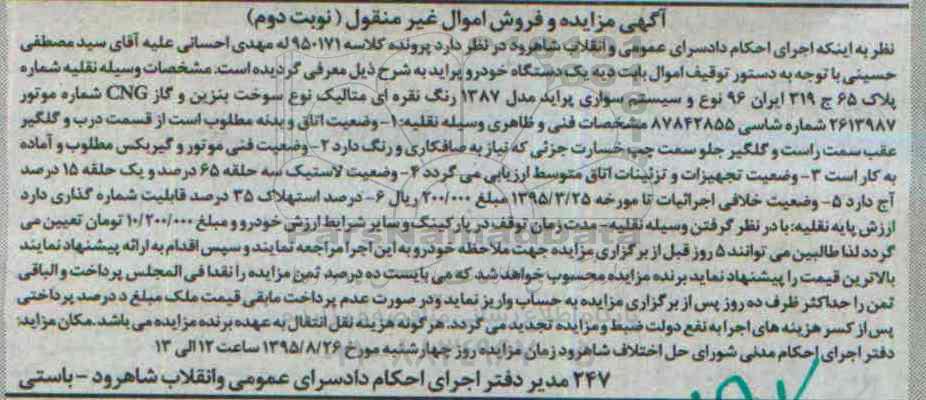 آگهی مزایده و فروش اموال غیر منقول (نوبت دوم)
نظر به اینکه اجرای احکام دادسرای عمومی و انقلاب شاهرود در نظر دارد پرونده کلاسه ۹۵۰۱۷۱ له مهدی احسانی علیه آقای سید مصطفی
حسینی با توجه به دستور توقیف اموال بابت دیه یک دستگاه خودرو پراید به شرح ذیل معرفی گردیده است. مشخصات وسیله نقلیه شماره
پلاک ۶۵ ج ۳۱۹ ایران ۹۶ نوع و سیستم سواری پراید مدل ۱۳۸۷ رنگ نقره ای متالیک نوع سوخت بنزین و گاز CNG شماره موتور
۲۶۱۳۹۸۷ شماره شاسی ۸۷۸۴۲۸۵۵ مشخصات فنی و ظاهری وسیله نقلیه: ۱- وضعیت اتاق و بدنه مطلوب است از قسمت درب و گلگیر
عقب سمت راست و گلگیر جلو سمت چپ خسارت جزئی که نیاز به صافکاری و رنگ دارد ۲- وضعیت فنی موتور و گیربکس مطلوب و آماده
به کار است ۳- وضعیت تجهیزات و تزئینات اتاق متوسط ارزیابی می گردد ۴- وضعیت لاستیک سه حلقه ۶۵ درصد و یک حلقه ۱۵ درصد
آج دارد ۵- وضعیت خلافی اجرائیات تا مورخه ۱۳۹۵/۳/۲۵ مبلغ ۲۰۰/۰۰۰ ریال ۶- درصد استهلاک ۳۵ درصد قابلیت شماره گذاری دارد
ارزش پایه نقلیه: با در نظر گرفتن وسیله نقلیه- مدت زمان توقف در پارکینگ و سایر شرایط ارزش خودرو و مبلغ ۱۰/۲۰۰/۰۰۰ تومان تعیین می
گردد لذا طالبین می توانند ۵ روز قبل از برگزاری مزایده جهت ملاحظه خودرو به این اجرا مراجعه نمایند و سپس اقدام به ارائه پیشنهاد نمایند
بالاترین قیمت را پیشنهاد نماید برنده مزایده محسوب خواهد شد که می بایست ده درصد ثمن مزایده را نقدا فی المجلس پرداخت و الباقی
ثمن را حداکثر ظرف ده روز پس از برگزاری مزایده به حساب واریز نماید ودر صورت عدم پرداخت مابقی قیمت ملک مبلغ د درصد پرداختی
پس از کسر هزینه های اجرا به نفع دولت ضبط و مزایده تجدید می گردد. هرگونه هزینه نقل انتقال به عهده برنده مزایده می باشد. مکان مزاید:
دفتر اجرای احکام مدنی شورای حل اختلاف شاهرود زمان مزایده روز چهارشنبه مورخ ۱۳۹۵/۸/۲۶ ساعت ۱۲ الی ۱۳
۲۴۷ مدیر دفتر اجرای احکام دادسرای عمومی وانقلاب شاهرود - باستی